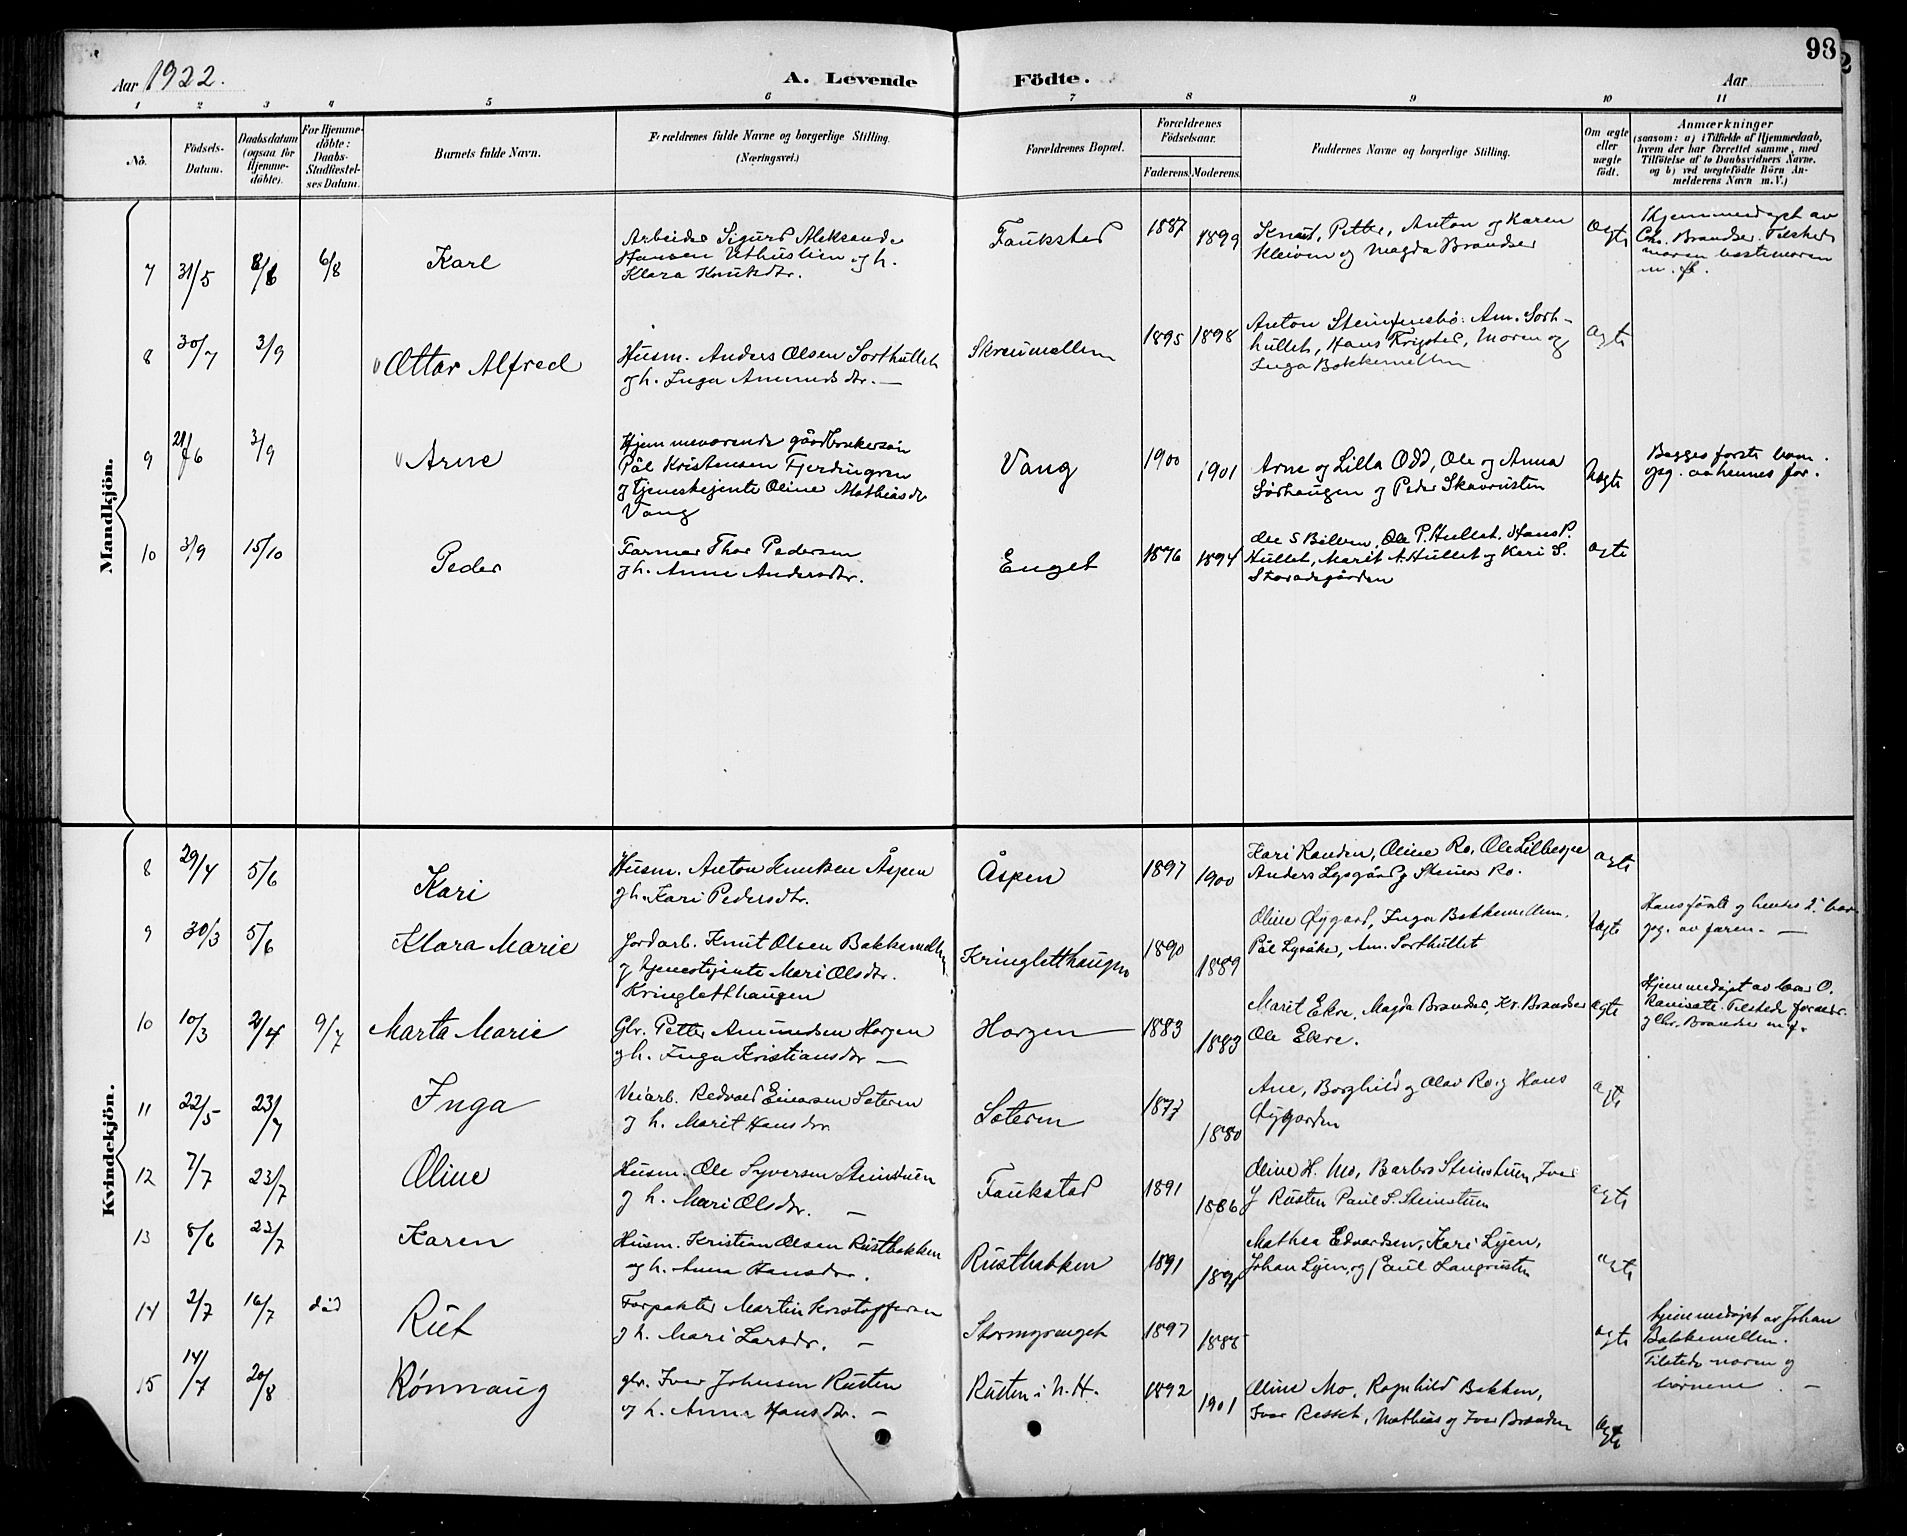 98
Aar 1922.
A. Levende Födte.
Aar
1 2 3 4 5 6 7 8 9 10 11
No.
Födsels-Datum.
Daabsdatum (ogsaa for Hjemmedöbte).
For Hjemmedöbte: Daabs-Stadfæstelses Datum.
Barnets fulde Navn.
Forældrenes fulde Navne og borgerlige Stilling.
(Næringsvei.)
Forældrenes Bopæl.
Forældrenes Födselsaar.
Faderens. Moderens.
Faddernes Navne og borgerlige Stilling.
Om ægte eller uægte födt.
Anmærkninger
(saasom: a) i Tilfælde af Hjemmedaab,
hvem der har forrettet samme, med
Tilföielse af to Daabsvidners Navne,
og b) ved uægtefödte Börn Anmelderens Navn m.V.)
Mandkjön.
7 31/5 8/6 6/8 Karl
Arbeider Sigurd Aleksander
Hansen Uthustien og h.
Klara Knutsdtr.
Faukstad 1887 1899
Knut, Petter, Anton og Karen
Kleiven og Magda Brandser
Ægte
Hjemmedøpt av
Chr. Brandser. Tilstede
moren bestemoren
m. fl.
8 30/7 3/9 Ottar Alfred
Husm. Anders Olsen Sorthullet
og h. Inga Amunds dtr. —
Skreumellem 1895 1898
Anton
hullet, Hans Frysted, Moren og
Inga Bakkemellem
ægte
9 21/6 3/9 Arne
Hjemmeværende gårdbrukersøn
Pål Kristensen Fjerdingren
og tjenestejente Oline Mathiasdr
Vang
Vang 1900 1901
Arne og Lilla Odd, Ole og Anna
Sørhaugen og Peder Skavrusten
Uægte
Begges første barn.
opg. av hennes far.
10 3/9 15/10 Peder
Farmar Thor Pedersen
og h. Anne Andersdtr.
Enget 1876 1894
Ole S Bilven, Ole P. Hullet, Hans P.
Hullet, Marit A. Hullet og Kari S.
Storadegården
ægte
Kvindekjön.
8 29/4 5/6 Kari
Husm. Anton Knutsen Åspen
og h. Kari Pedersdtr.
Åspen 1897 1900
Kari Randen, Oline Ro, Ole Lilbesje
Anders Lysgård og Steinar Ro.
ægte
9 30/3 5/6 Klara Marie
Jordarb. Knut Olsen Bakkemellem
og tjenestejente Mari Olsdtr.
Kringletthaugen
Kringletthaugen 1890 1889
Oline Øygard, Inga Bakkemellem.
Pål Lysåke, Am. Sorthullet
Uægte
Hans første og hendes 2. barn
opg. av faren. —
10 10/3 2/4 9/7 Marta Marie
Gbr. Petter Amundsen Horgen
og h. Inga Kristiansdtr —
Horgen 1883 1883
Marit Ekre, Magda Brandser, Kr. Brandser
Ole Ekre.
ægte
Hjemmedøpt av O.
Tilstede
og Chr. Brandser m.f.
11 22/5 23/7 Inga
Veiarb. Redvald Einarsen Sæteren
og h. Marit Hansdtr
Sæteren 1877 1880
Ane, Borghild og Olav Ro og Hans
Øygarden
ægte
12 7/7 23/7 Oline
Husm. Ole Syversen Steinstuen
og h. Mari Olsdtr. —
Faukstad 1891 1886
Oline H. Mo, Barbro Steinstuen, Iver
J Rusten Paul S. Steinstuen
ægte
13 8/6 23/7 Karen
Husm. Kristian Olsen Rustbakken
og h. Anna Hansdtr.
Rustbakken 1891 1891
Mathea Edvardsen, Kari Lyen,
Johan Lyen, og Paul Langrusten
ægte
14 2/7 16/7 død Rut
Forpakter Martin Kristoffersen
og h. Mari Larsdtr. —
Stormyrenget 1897 1888
ægte
hjemmedøpt av Johan
Bakkemellem.
Tilstede moren og
børnene —
15 14/7 20/8 Rønnaug
gbr. Iver Johnsen Rusten
og h. Anne Hansdtr. —
Rusten i N. H. 1892 1901
Oline Mo, Ragnhild Bakken,
Ivar Resset, Mathias og Iver Brenden
ægte